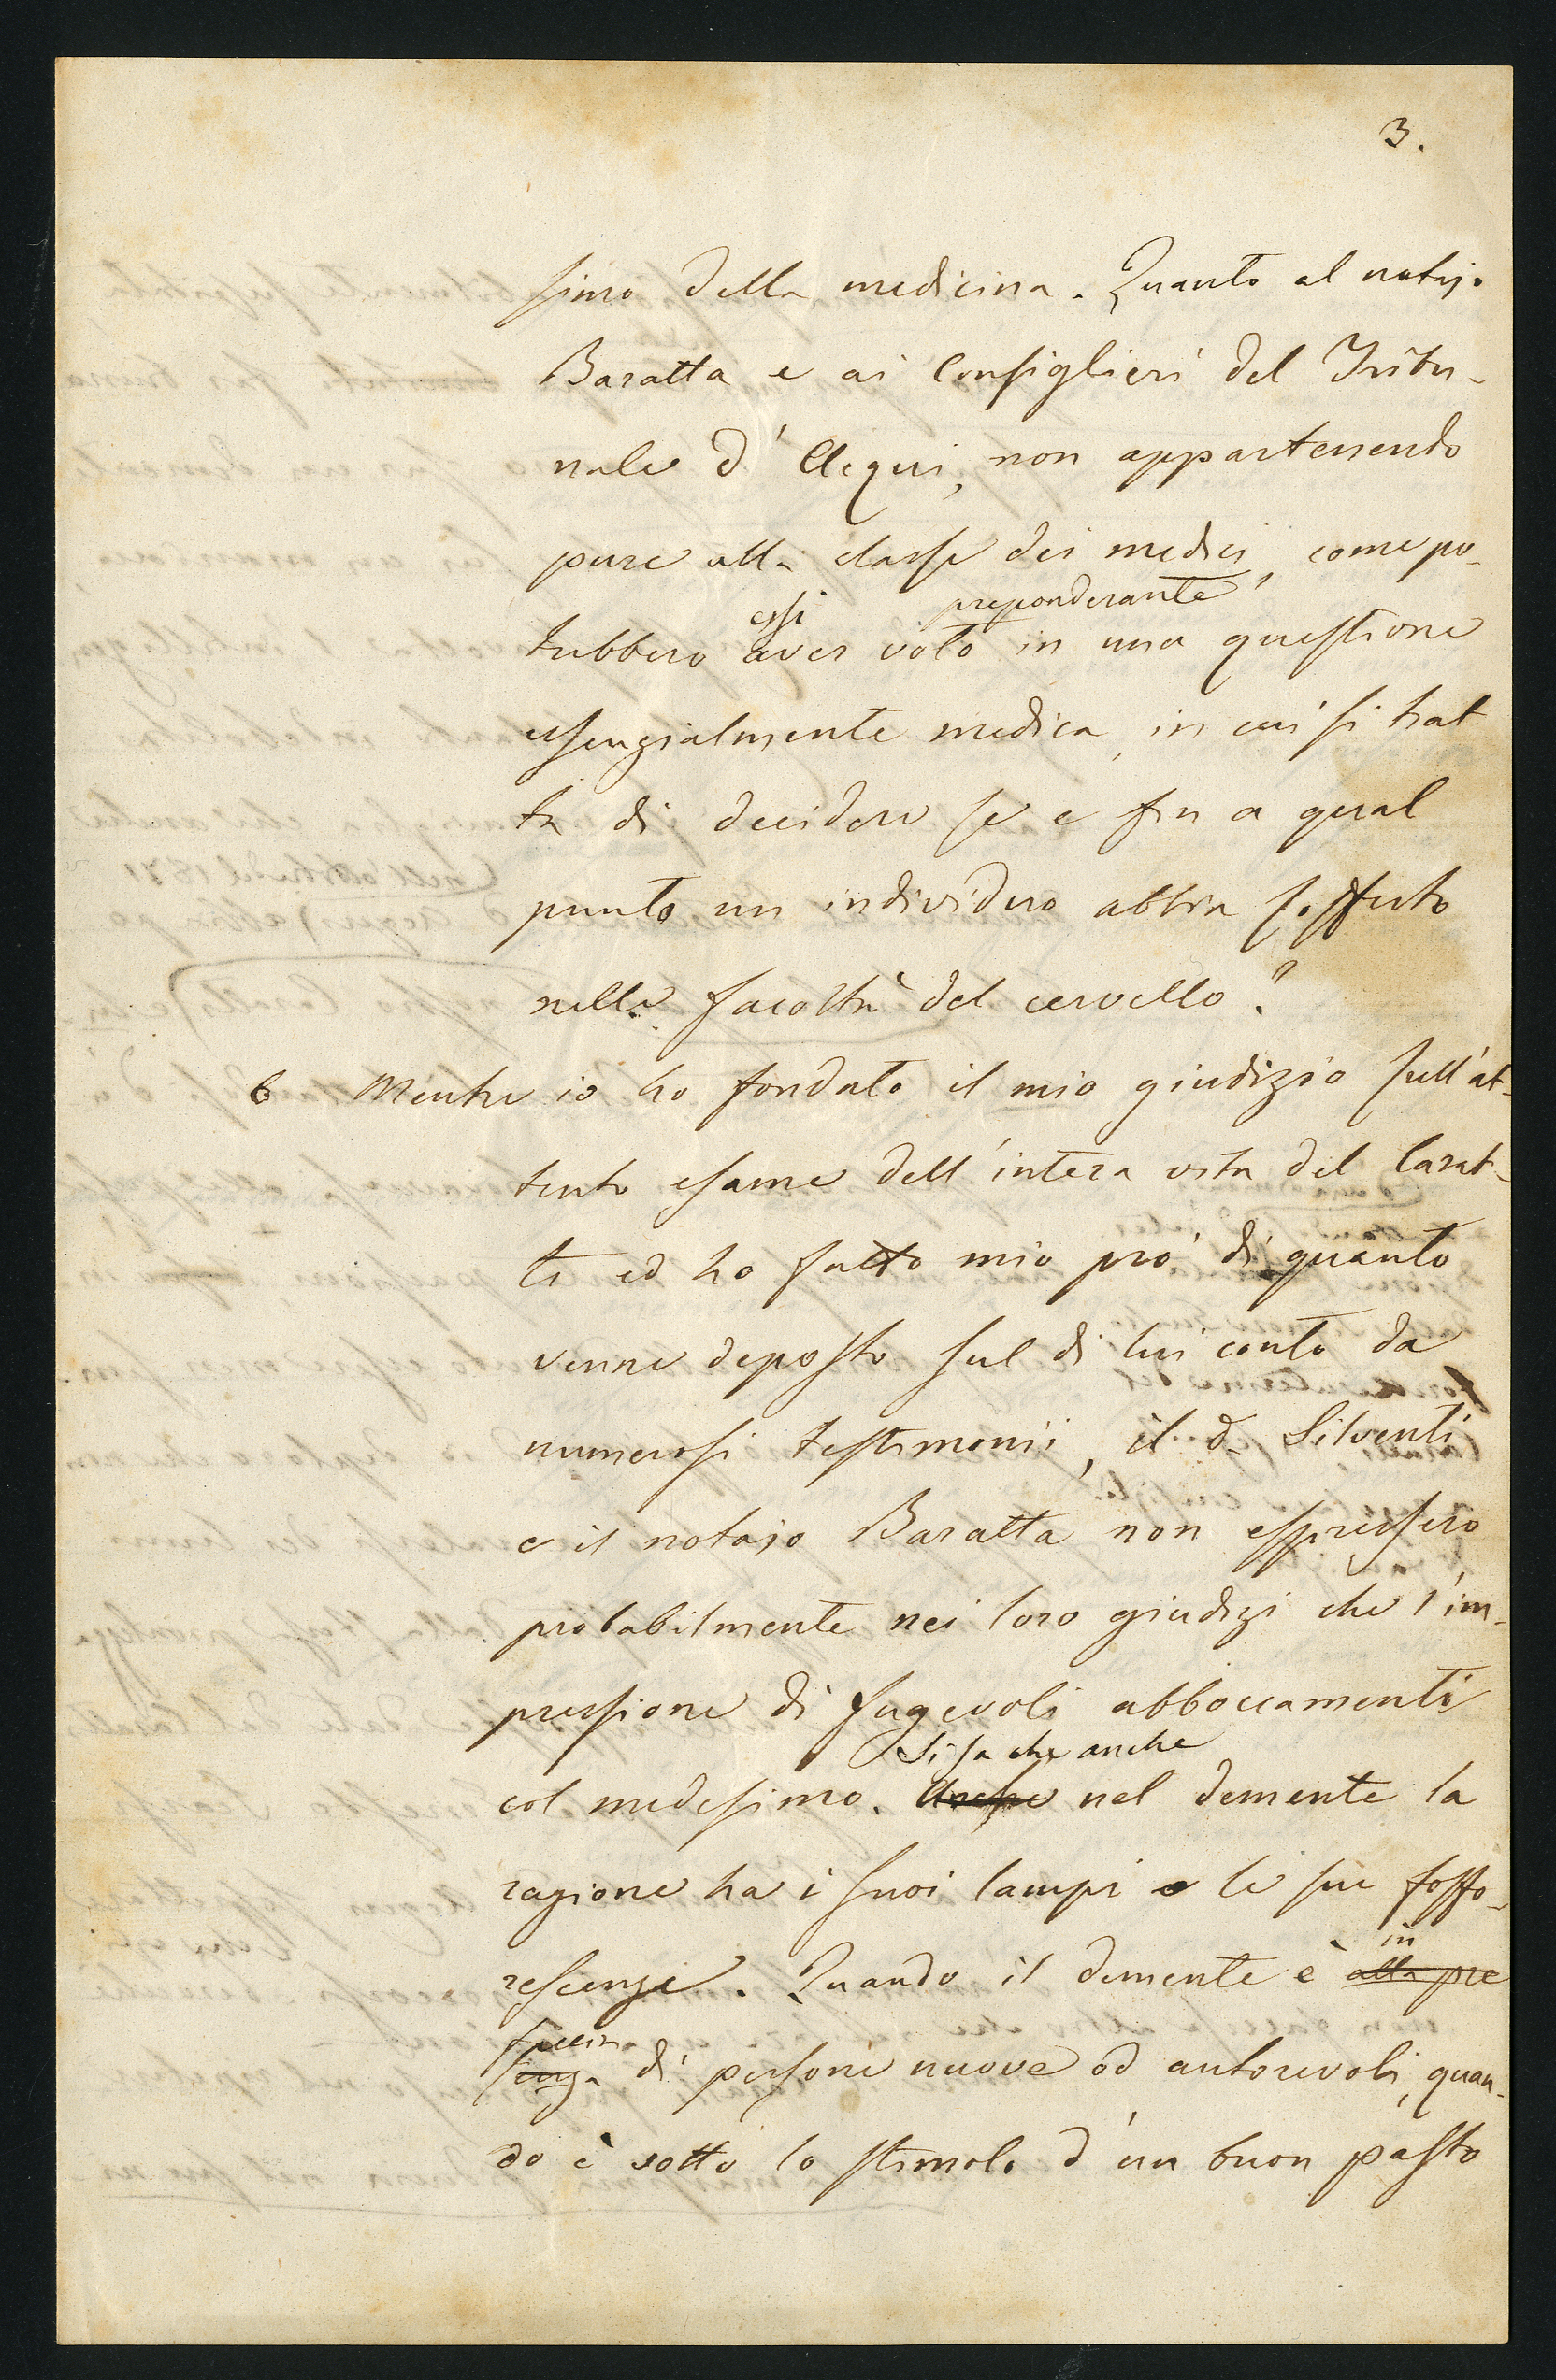 3.
simo della medicina. Quanto al notajo
Baratta e ai Consiglieri del Tribu-
nale d'Acqui, non appartenendo
pure alla classe dei medici, come po-
essi preponderante
trebbero aver voto in una questione
essenzialmente medica, in cui si trat
ta di decidere se e fin a qual
punto un individuo abbia sofferto
nelle facoltà del cervello?
6 Mentre io ho fondato il mio giudizio sull'at-
tento esame dell'intera vita del Carat-
ti ed ho fatto mio prò di quanto
venne deposto sul di lui conto da
numerosi testimonii, il d. Silventi
e il notajo Baratta non espressero
probabilmente nei loro giudizi che l'im-
pressione di fugevoli abboccamenti
Si sa che anche
col medesimo. Anche nel demente la
ragione ha i suoi lampi e le sue fosfo-
in
rescenze. Quando il demente è alla pre
faccia
senza di persone nuove od autorevoli, quan-
do è sotto lo stimolo d'un buon pasto